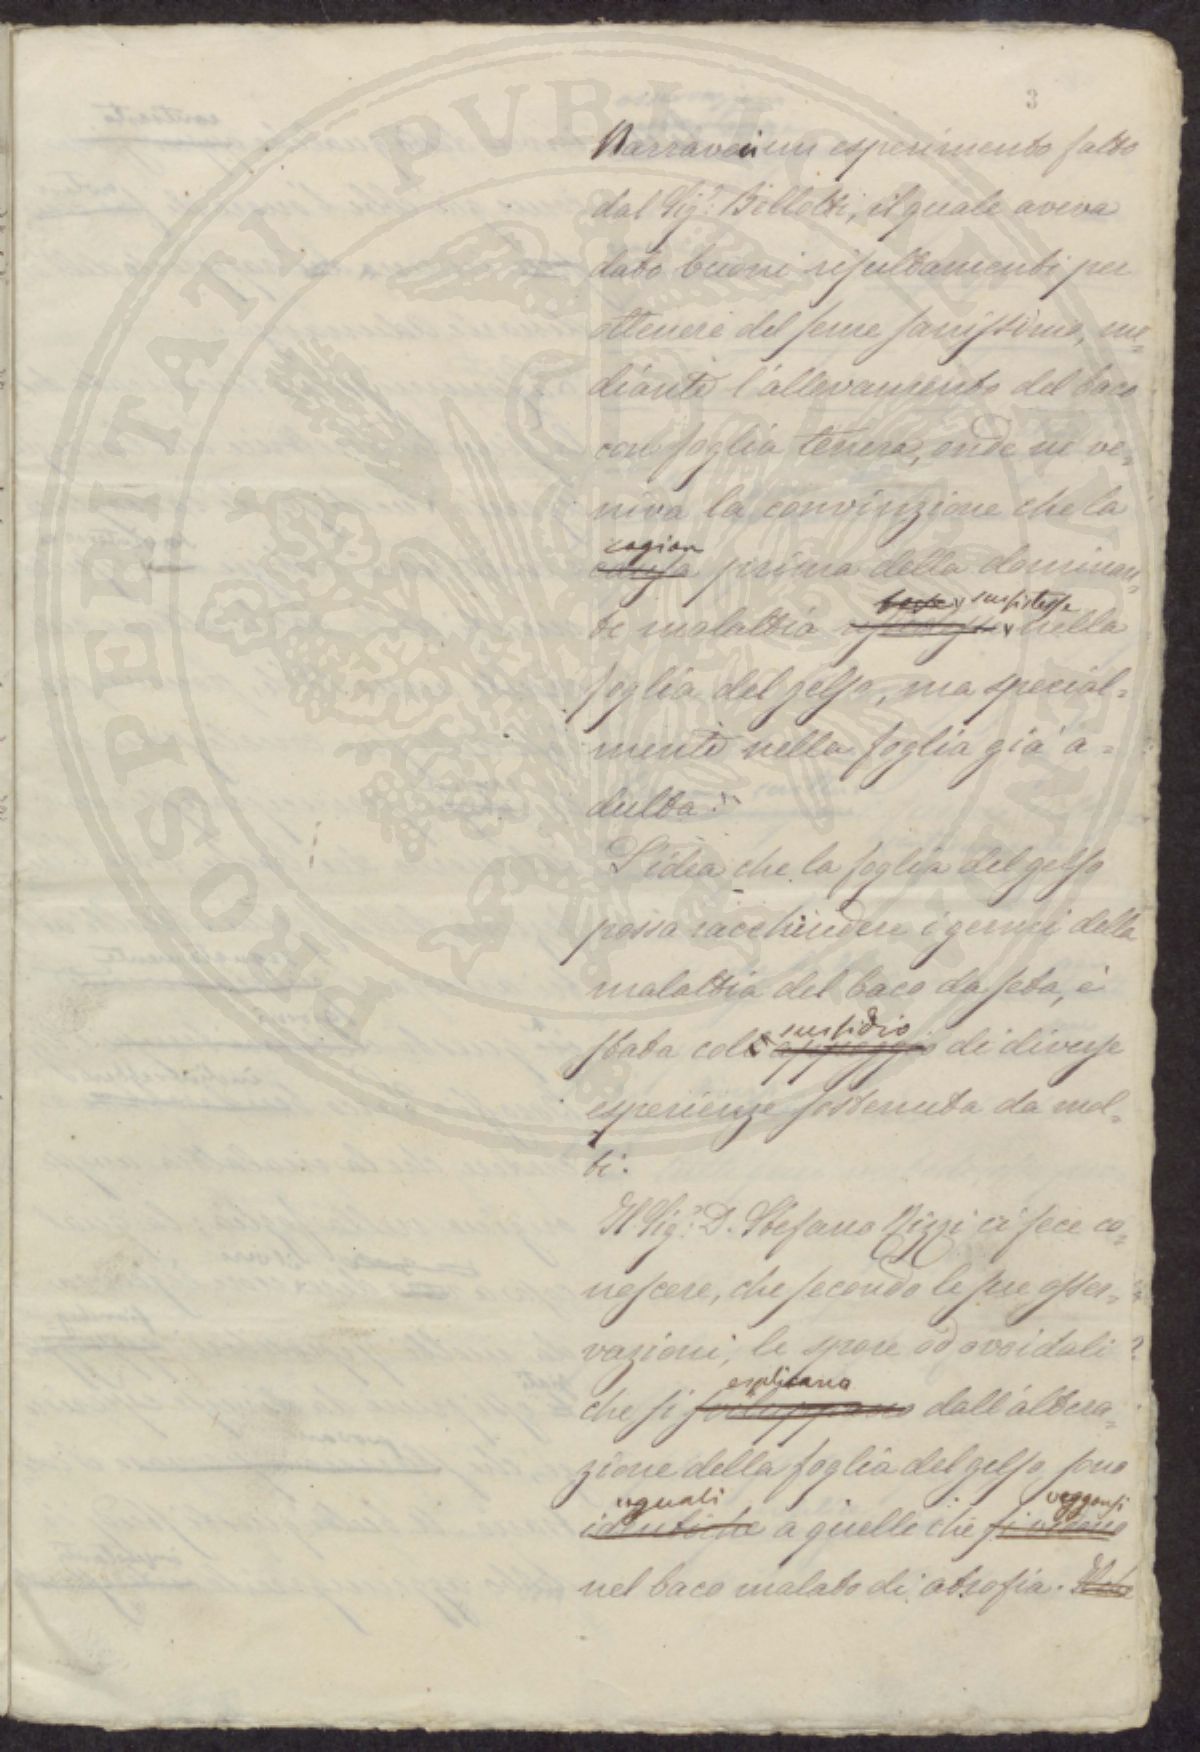 3
Narravasi un esperimento fatto
dal Sig.r Bellotti, il quale aveva
dato buoni risultamenti per
ottenere del seme sanissimo, me-
diante l'allevamento del baco
con foglia tenera, onde ne ve-
niva la convinzione che la
cagion
causa prima della dominan-
fosse sussistesse
te malattia nella
foglia del gelso, ma special-
mente nella foglia già a-
dulta.
L'idea che la foglia del gelso
possa racchiudere i germi della
malattia del baco da seta, è
sussidio
stata coll'appoggio di diverse
esperienze sostenuta da mol-
ti.
Il Sig.r D. Stefano Nizzi ci fece co-
noscere, che secondo le sue osser-
vazioni, le spore od ovoidali
esplicano
che si sviluppano dall'altera-
zione della foglia del gelso sono
uguali veggonsi
identiche a quelle che si vedono
nel baco malato di atrofia.
PROSPERITATI PUBLICAE